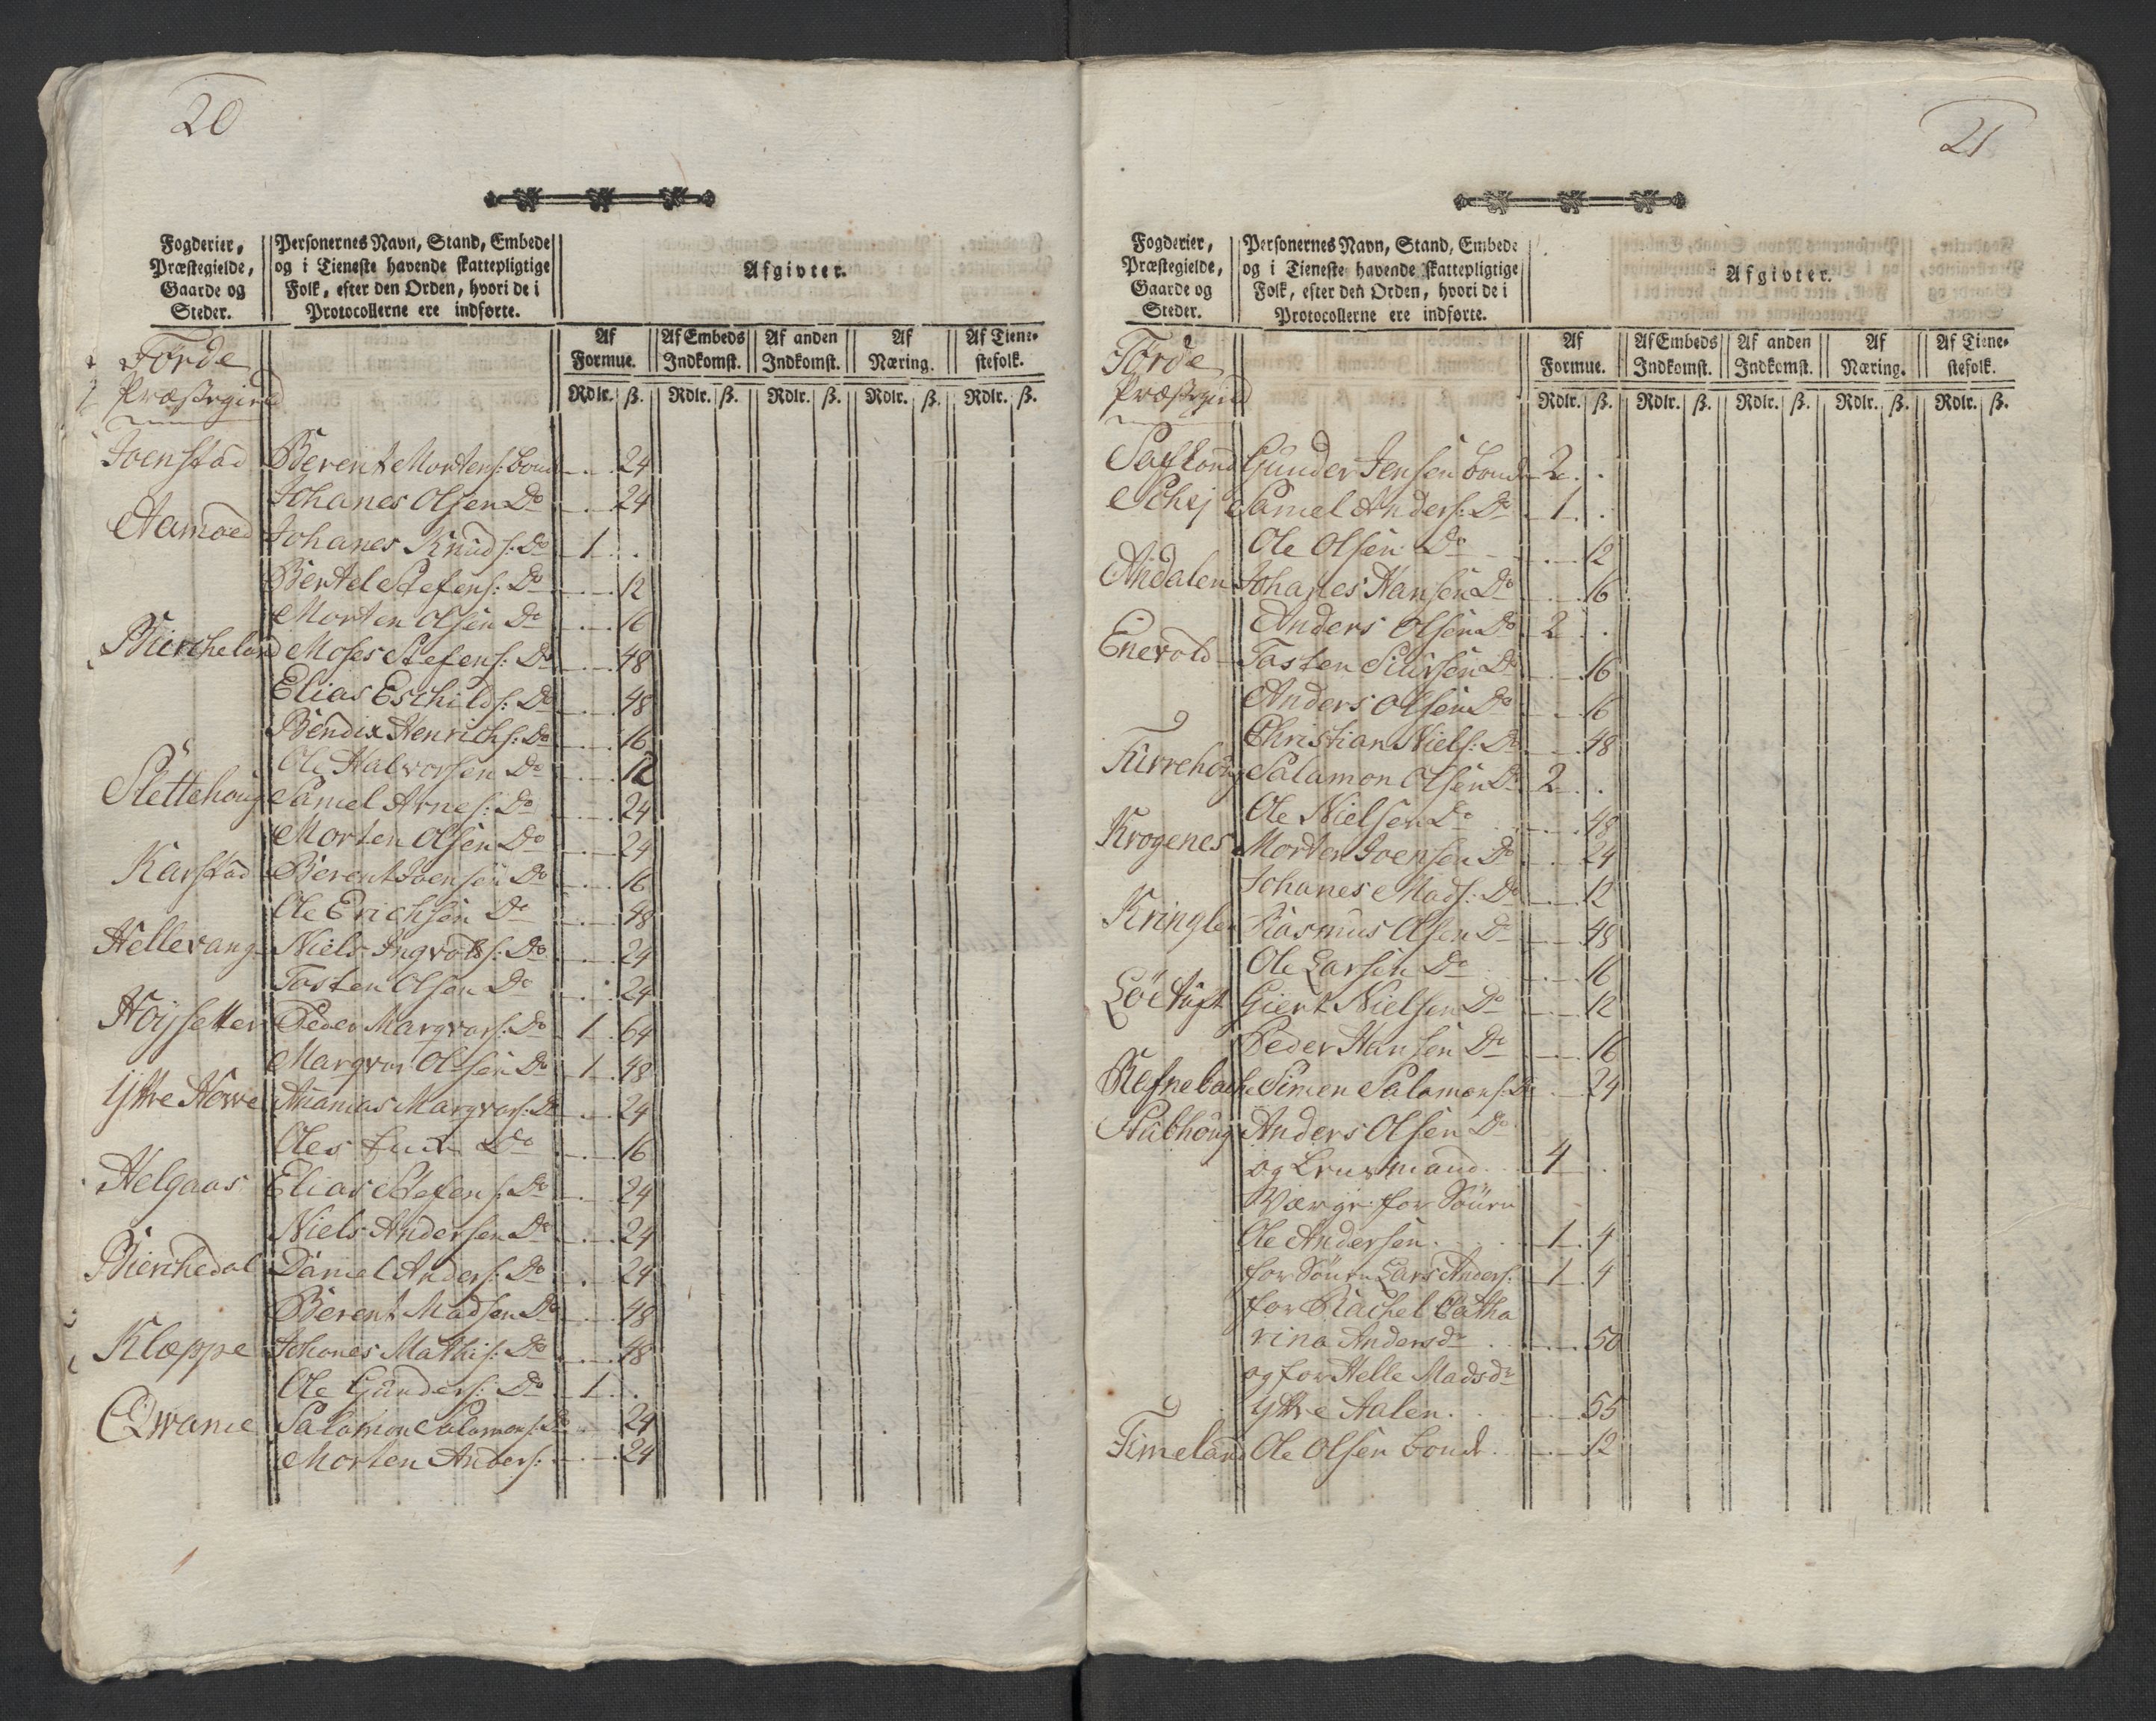 20
Fogderier, Præstegielde, Gaarde og Steder.
Personernes Navn, Stand, Embede og i Tieneste havende skattepligtige Folk, efter den Orden, hvori de i Protocollerne ere indførte.
Afgivter.
Af Formue. Af Embeds Indkomst. Af anden Indkomst. Af Næring. Af Tienestefolk.
Rdlr. ß. Rdlr. ß. Rdlr. ß. Rdlr. ß. Rdlr. ß.
Førde
Præstegield
Joenstad Berent Mortens: bonde 24
Johanes Olsen Do 24
Aamoed Johanes Knuds: Do 1 .
Bertel Stefens: Do 12
Morten Olsen Do 16
Biercheland Moses Stefens: Do 48
Elias Eschilds: Do 48
Bendix Henrichs: Do 16
Ole Halvorsen Do 12
Slettehoug Samel Arnes: Do 24
Morten Olsen Do 24
Karstad Berent Joensen Do 16
Ole Erichsen Do 48
Hellevang Niels Ingvolds: Do 24
Tosten Olsen Do 24
Høysetter Peder Marqvars: Do 1 64
Marqvar Olsen Do 1 48
Yttre Howe Ananias Marqvars: Do 24
Ole Do 16
Helgaas Elias Stefens: Do 24
Niels Andersen Do 24
Bierchedal Daniel Anders: Do 24
Berent Madsen Do 48
Klæppe Johanes Mathis: Do 48
Ole Gunders: Do 1 .
Qwame Salamon Salamons: Do 24
Morten Anders: 24
21
Fogderier, Præstegielde, Gaarde og Steder.
Personernes Navn, Stand, Embede og i Tieneste havende skattepligtige Folk, efter den Orden, hvori de i Protocollerne ere indførte.
Afgivter.
Af Formue. Af Embeds Indkomst. Af anden Indkomst. Af Næring. Af Tienestefolk.
Rdlr. ß. Rdlr. ß. Rdlr. ß. Rdlr. ß. Rdlr. ß.
Førde
Præstegield
Gunder Jensen bonde 2 .
Schej Samel Anders: Do 1 .
Ole Olsen Do 12
Andalen Johanes Hansen Do 16
Anders Olsen Do 2 .
Enevold Tosten Siursen Do 16
Anders Olsen Do 16
Christian Niels: Do 48
Furrehoug Salamon Olsen Do 2 .
Ole Nielsen Do 48
Krogenes Morten Joensen Do 24
Johanes Mads: Do 12
Kringlen Rasmus Olsen Do 48
Ole Larsen Do 16
Løetuft Giert Nielsen Do 12
Peder Hansen Do 16
Refnebach Simen Salamons: Do 24
Stubhoug Anders Olsen Do
og 4 .
Værge for Sønen
Ole Andersen 1 4
for Sønen Lars Anders: 1 4
for Rachel Catha
rina Andersdr 50
og for Helle Madsdr
Yttre Aalen 55
Fimeland Ole Olsen bonde 12